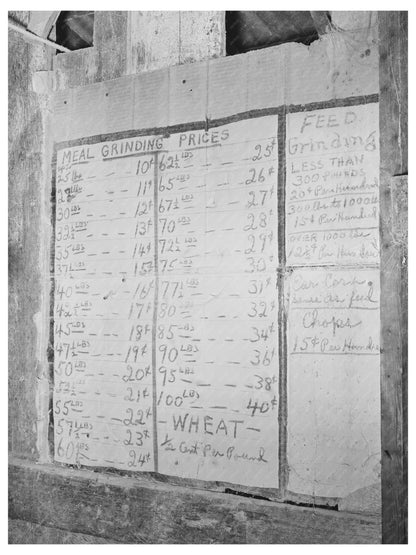 MEAL GRINDING PRICES
25 lbs 10¢
11¢
30 LBS 12¢
32½ LBS 13¢
35 LBS 14¢
37½ LBS 15¢
40 LBS 16¢
42½ LBS 17¢
45 LBS 18¢
47½ LBS 19¢
50 LBS 20¢
52½ LBS 21¢
55 LBS 22¢
57½ LBS 23¢
60 LBS 24¢
62½ LBS 25¢
65 LBS 26¢
67½ LBS 27¢
70 LBS 28¢
72½ LBS 29¢
75 LBS 30¢
77½ LBS 31¢
80 LBS 32¢
85 LBS 34¢
90 LBS 36¢
95 LBS 38¢
100 LBS 40¢
- WHEAT -
½ Cent Per Pound
FEED
Grinding
LESS THAN
300 POUNDS
20¢ Per Hundred
300 lbs to 1000 lbs
15¢ Per Hundred
over 1000 lbs
12½¢ Per Hundred
Ear Corn
same as feed
Chops
15¢ Per Hundred